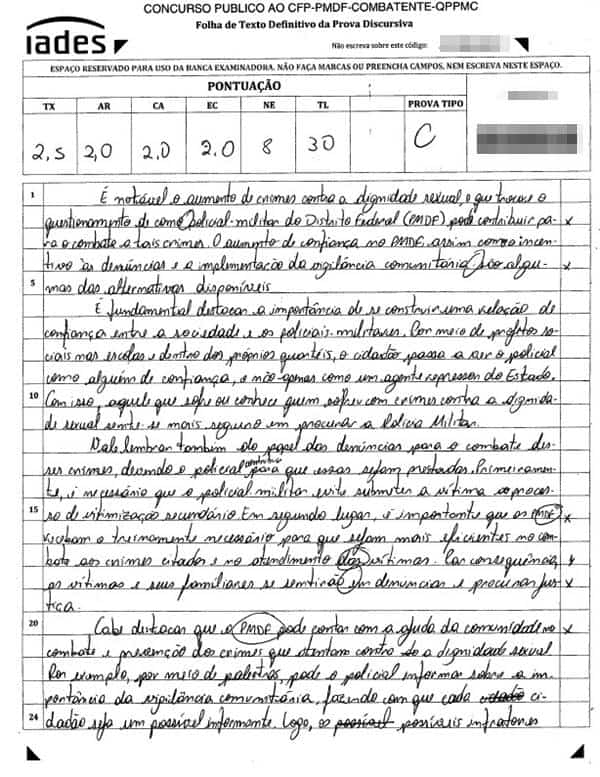 CONCURSO PUBLICO AO CFP-PMDF-COMBATENTE-QPPMC
Folha de Texto Definitivo da Prova Discursiva
iades
Não escreva sobre este código:
ESPAÇO RESERVADO PARA USO DA BANCA EXAMINADORA. NÃO FAÇA MARCAS OU PREENCHA CAMPOS, NEM ESCREVA NESTE ESPAÇO.
PONTUAÇÃO
TX AR CA EC NE TL PROVA TIPO
2,5 2,0 2,0 2,0 8 30 C
1 É notável o aumento de crimes contra a dignidade sexual, o que trouxe o
questionamento de como policial-militar do Distrito Federal (PMDF) pode contribuir pa- x
ra o combate a tais crimes. O aumento de confiança no PMDF, assim como o incen-
tivo às denúncias e a implementação da vigilância comunitária são algu- x
5 mas das alternativas disponíveis
É fundamental destacar a importância de se construir uma relação de
confiança entre a sociedade e os policiais-militares. Por meio de projetos so-
ciais nas escolas e dentro dos próprios quartéis, o cidadão passa a ver o policial
como alguém de confiança, e não apenas como um agente repressor do Estado.
10 Com isso, aquele que sofre ou conhece quem sofreu com crimes contra a dignida-
de sexual sente-se mais seguro em procurar a Polícia Militar.
Vale lembrar também do papel das denúncias para o combate des-
ses crimes, devendo o policial contribuir para que essas sejam prestadas. Primeiramen-
te, é necessário que o policial militar evite submeter a vítima ao proces-
15 so de vitimização secundário. Em segundo lugar, é importante que os PMDF x
recebam o treinamento necessário para que sejam mais eficientes no com-
bate aos crimes citados e no atendimento das vítimas. Por consequência, x
as vítimas e seus familiares se sentirão em denunciar e procurar jus- x
tiça.
20 Cabe destacar que o PMDF pode contar com a ajuda da comunidade no x
combate e prevenção dos crimes que atentam contra a dignidade sexual
Por exemplo, por meio de palestras, pode o policial informar sobre a im-
portância da vigilância comunitária, fazendo com que cada ci-
24 dadão seja um possível informante. Logo, os possíveis infratores